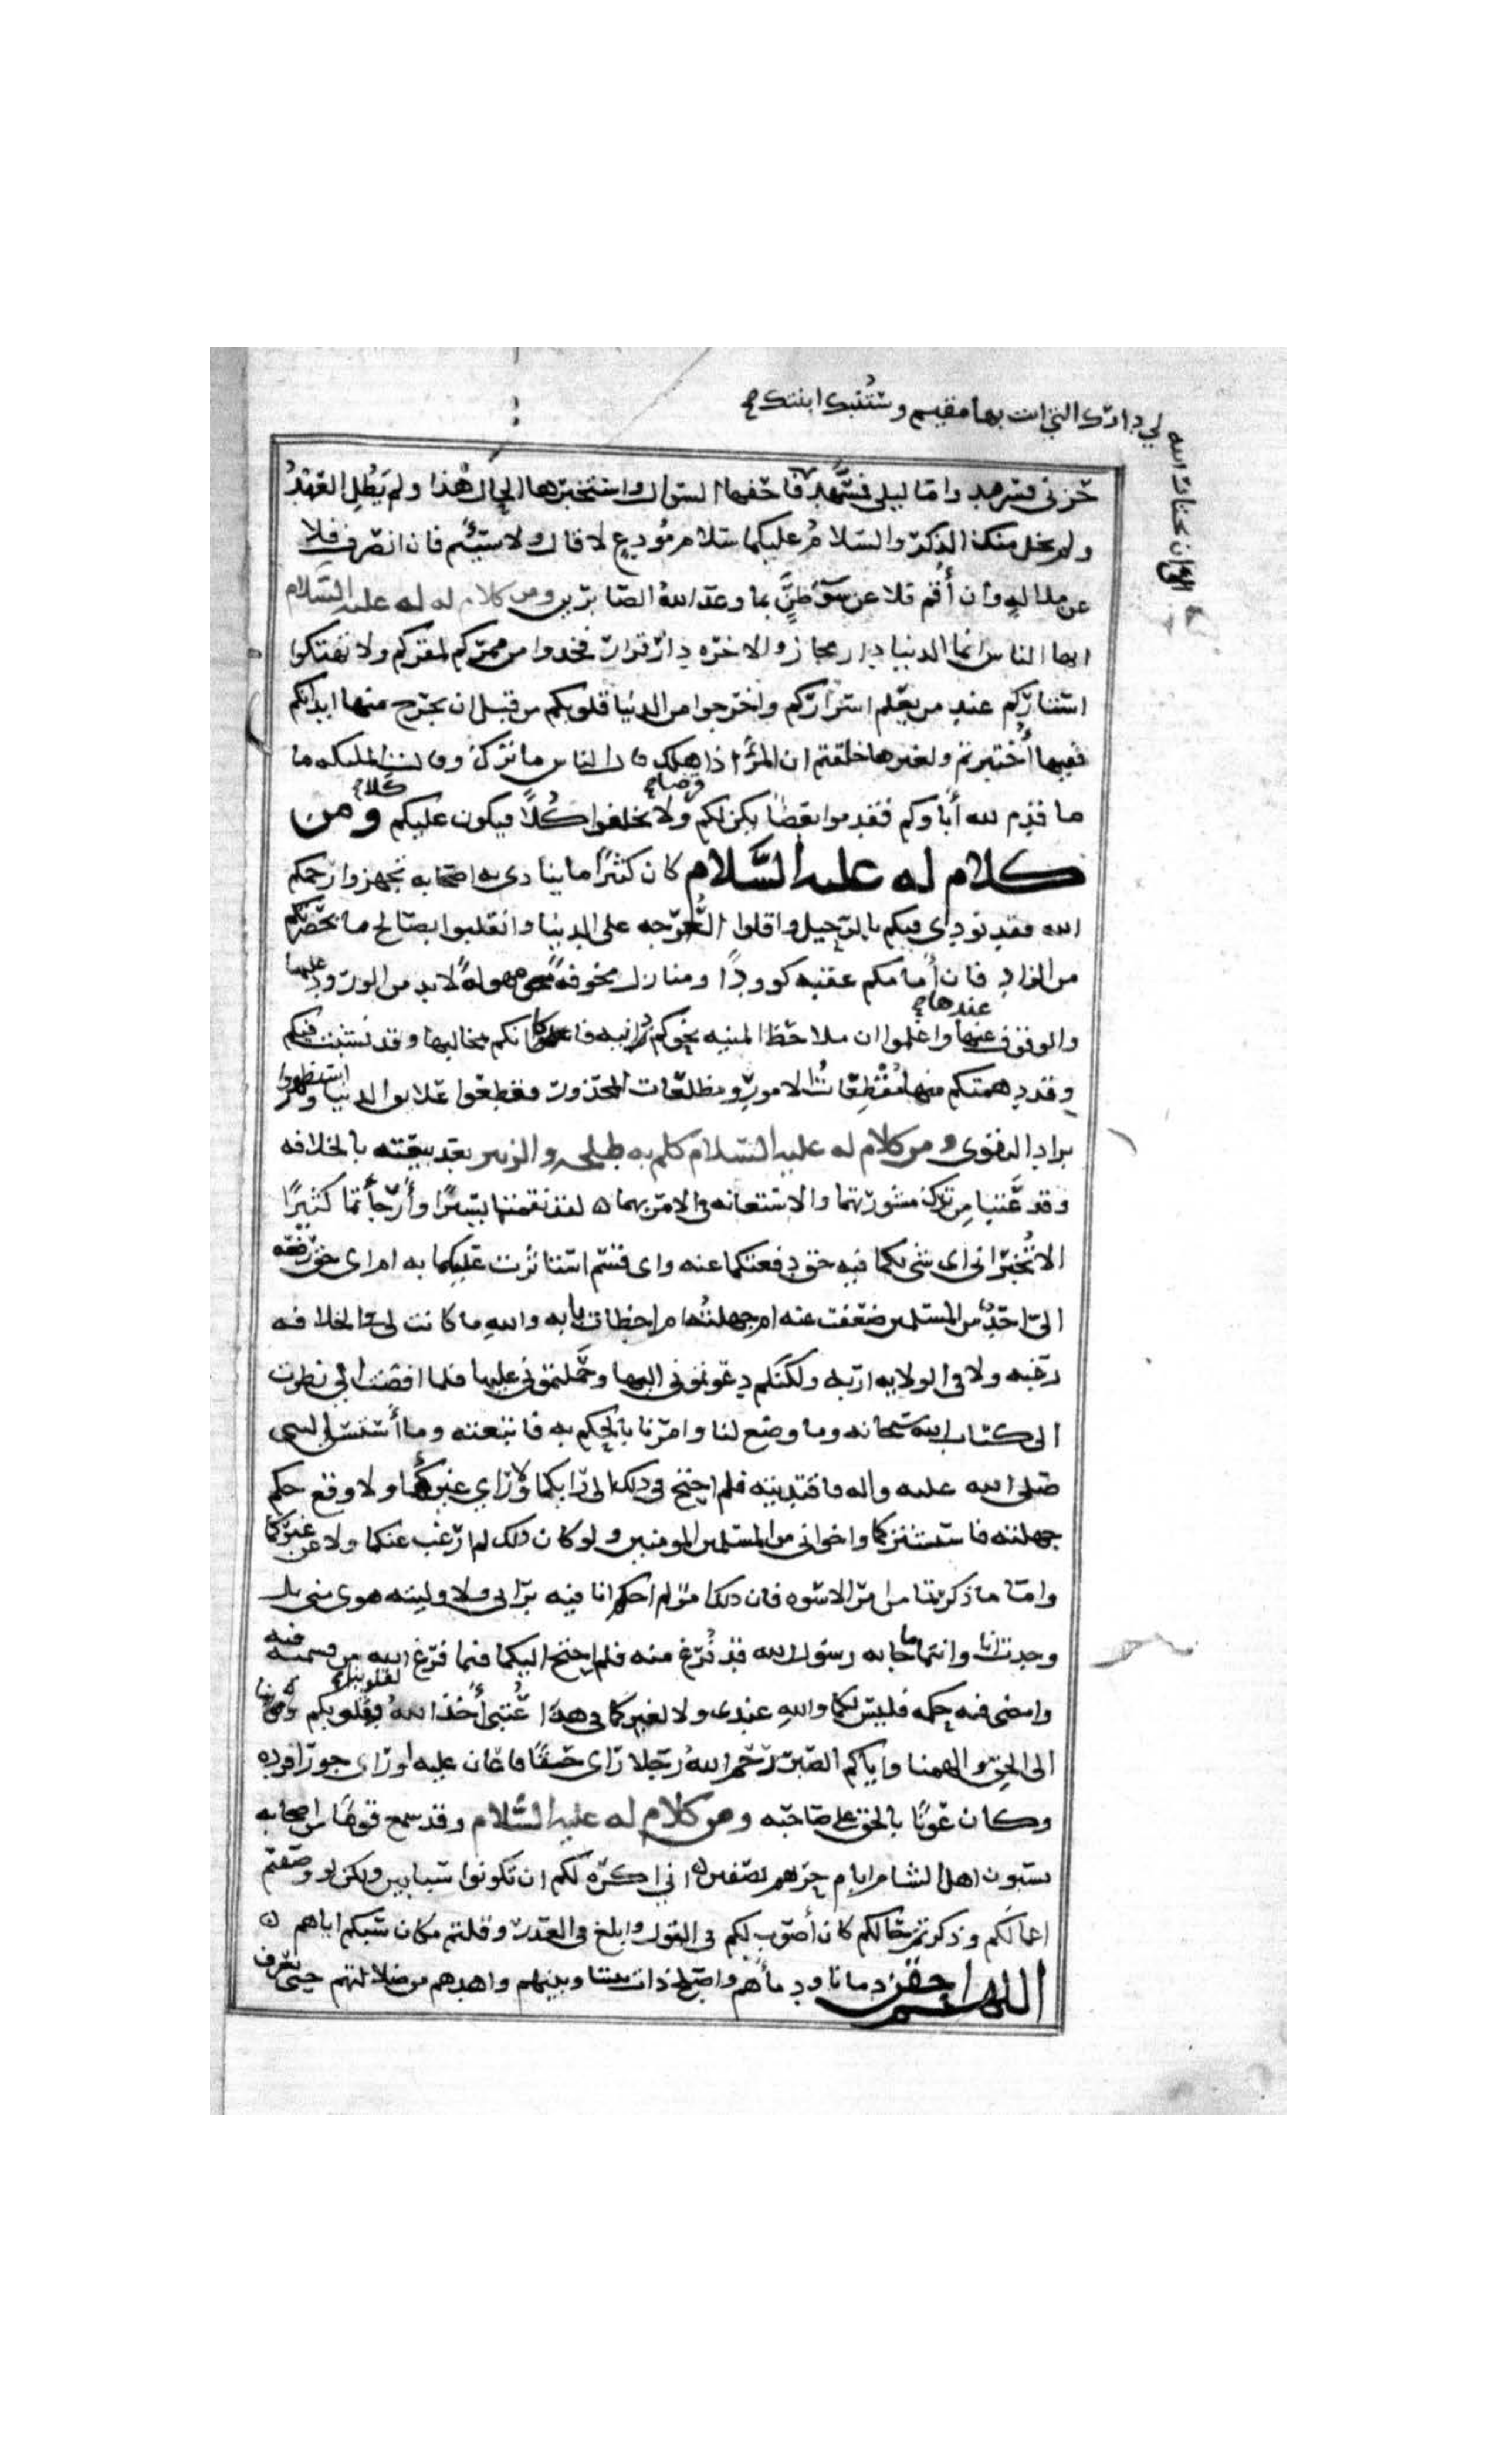 لي دارك التي انت بها مقيم وستنبئك ابنتك
الى ان يختار الله
حزني فسرمد واما ليلي فمسهد فاحفها السوال واستخبرها الحال هذا ولم يطل العهد
ولم يخل منك الذكر والسلام عليكما سلام مودع لا قال ولا سئم فان انصرف فلا
عن ملاله وان أقم فلا عن سوء ظن بما وعد الله الصابرين ومن كلام له عليه السلام
ايها الناس انما الدنيا دار مجاز والاخره دار قرار فخذوا من ممركم لمقركم ولا تهتكوا
استاركم عند من يعلم اسراركم واخرجوا من الدنيا قلوبكم من قبل ان يخرج منها ابدانكم
ففيها أختبرتم ولغيرها خلقتم ان المرء اذا هلك قال الناس ما ترك وقالت الملئكه ما
ما قدم لله أباوكم فقدموا بعضا يكن لكم ولا تخلفوا كلا فيكون عليكم ومن
قرضا
كلا
كلام له عليه السلام كان كثيرا ما ينادي به اصحابه تجهزوا رحمكم
الله فقد نودي فيكم بالرحيل واقلوا العرجه على الدنيا وانقلبوا بصالح ما بحضرتكم
من الزاد فان أمامكم عقبه كوودا ومنازل مخوفة مهولة لابد من الورود عليها
عندها
والوقوف عندها واعلموا ان ملاحظ المنيه نحوكم دانيه فكانكم بمخالبها وقد نشبت فيكم
وقد دهمتكم منها مفظعات الامور ومظلعات المحذور فقطعوا علايق الدنيا واستظهروا
بزاد التقوى ومن كلام له عليه السلام كلم به طلحه والزبير بعد بيعته بالخلافه
وقد عتبا من ترك مشورتهما والاستعانه في الامر بهما لقد نقمتما يسيرا وأرجأتما كثيرا
الا تخبراني اي شي لكما فيه حق دفعتكما عنه واي قسم استاثرت عليكما به ام اي حق رفعه
الي احد من المسلمين ضعفت عنه ام جهلته ام اخطات بابه والله ما كانت لي في الخلافه
رغبه ولا في الولايه اربه ولكنكم دعوتموني اليها وحملتموني عليها فلما افضت الي نظرت
الى كتاب الله سبحانه وما وضع لنا وامرنا بالحكم به فاتبعته وما أستسن النبي
صلى الله عليه واله فاقتديته فلم احتج في ذلك الى رايكما ولا راي غيركما ولا وقع حكم
جهلته فاستشيركما واخواني من المسلمين المومنين ولو كان ذلك لم ارغب عنكما ولا عن غيركما
واما ما ذكرتما من امر الاسوه فان ذلك امر لم احكم انا فيه برايي ولا وليته هوى مني بل
وجدت انا وانتما ما جا به رسول الله قد فرغ منه فلم احتج اليكما فيما فرغ الله من قسمه فيه
وامضى فيه حكمه فليس لكما والله عندي ولا لغيركما في هذا عتبي أخذ الله بقلوبكم وقلوبنا
الى الحق والهمنا واياكم الصبر رحم الله رجلا راى حقا فاعان عليه اوراى جورا فرده
وكان عونا بالحق على صاحبه ومن كلام له عليه السلام وقد سمع قوما من اصحابه
يسبون اهل الشام ايام حربهم بصفين اني اكره لكم ان تكونوا سبابين ولكن لو وصفتم
اعمالكم وذكرتم حالهم كان أصوب لكم في القول وابلغ في العذر وقلتم مكان سبكم اياهم
اللهم احقن دمانا ودمأهم واصلح ذات بيننا وبينهم واهدهم من ضلالتهم حتى يعرف